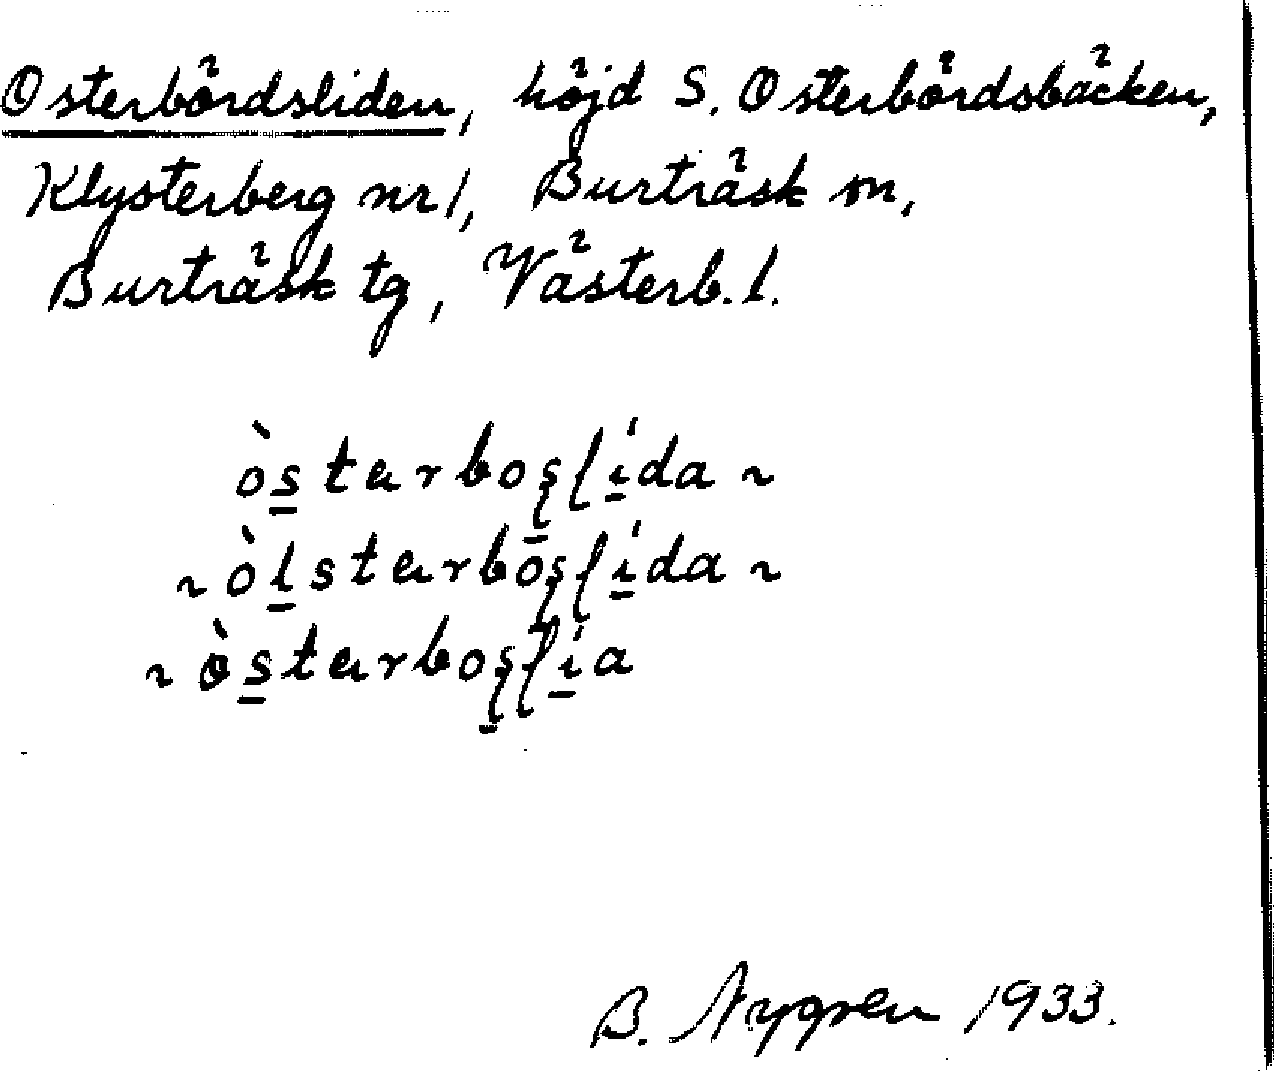 Osterbördsliden, höjd S. Osterbördsbäcken,
Klysterberg nr 1, Burträsk sn,
Burträsk tg, Västerb. l.
òs̲tɐrboʂɭi̲da ~
~ òl̲stɐrbōʂɭi̲da ~
~ òs̲tɐrboʂɭi̲a
B. Nygren 1933.